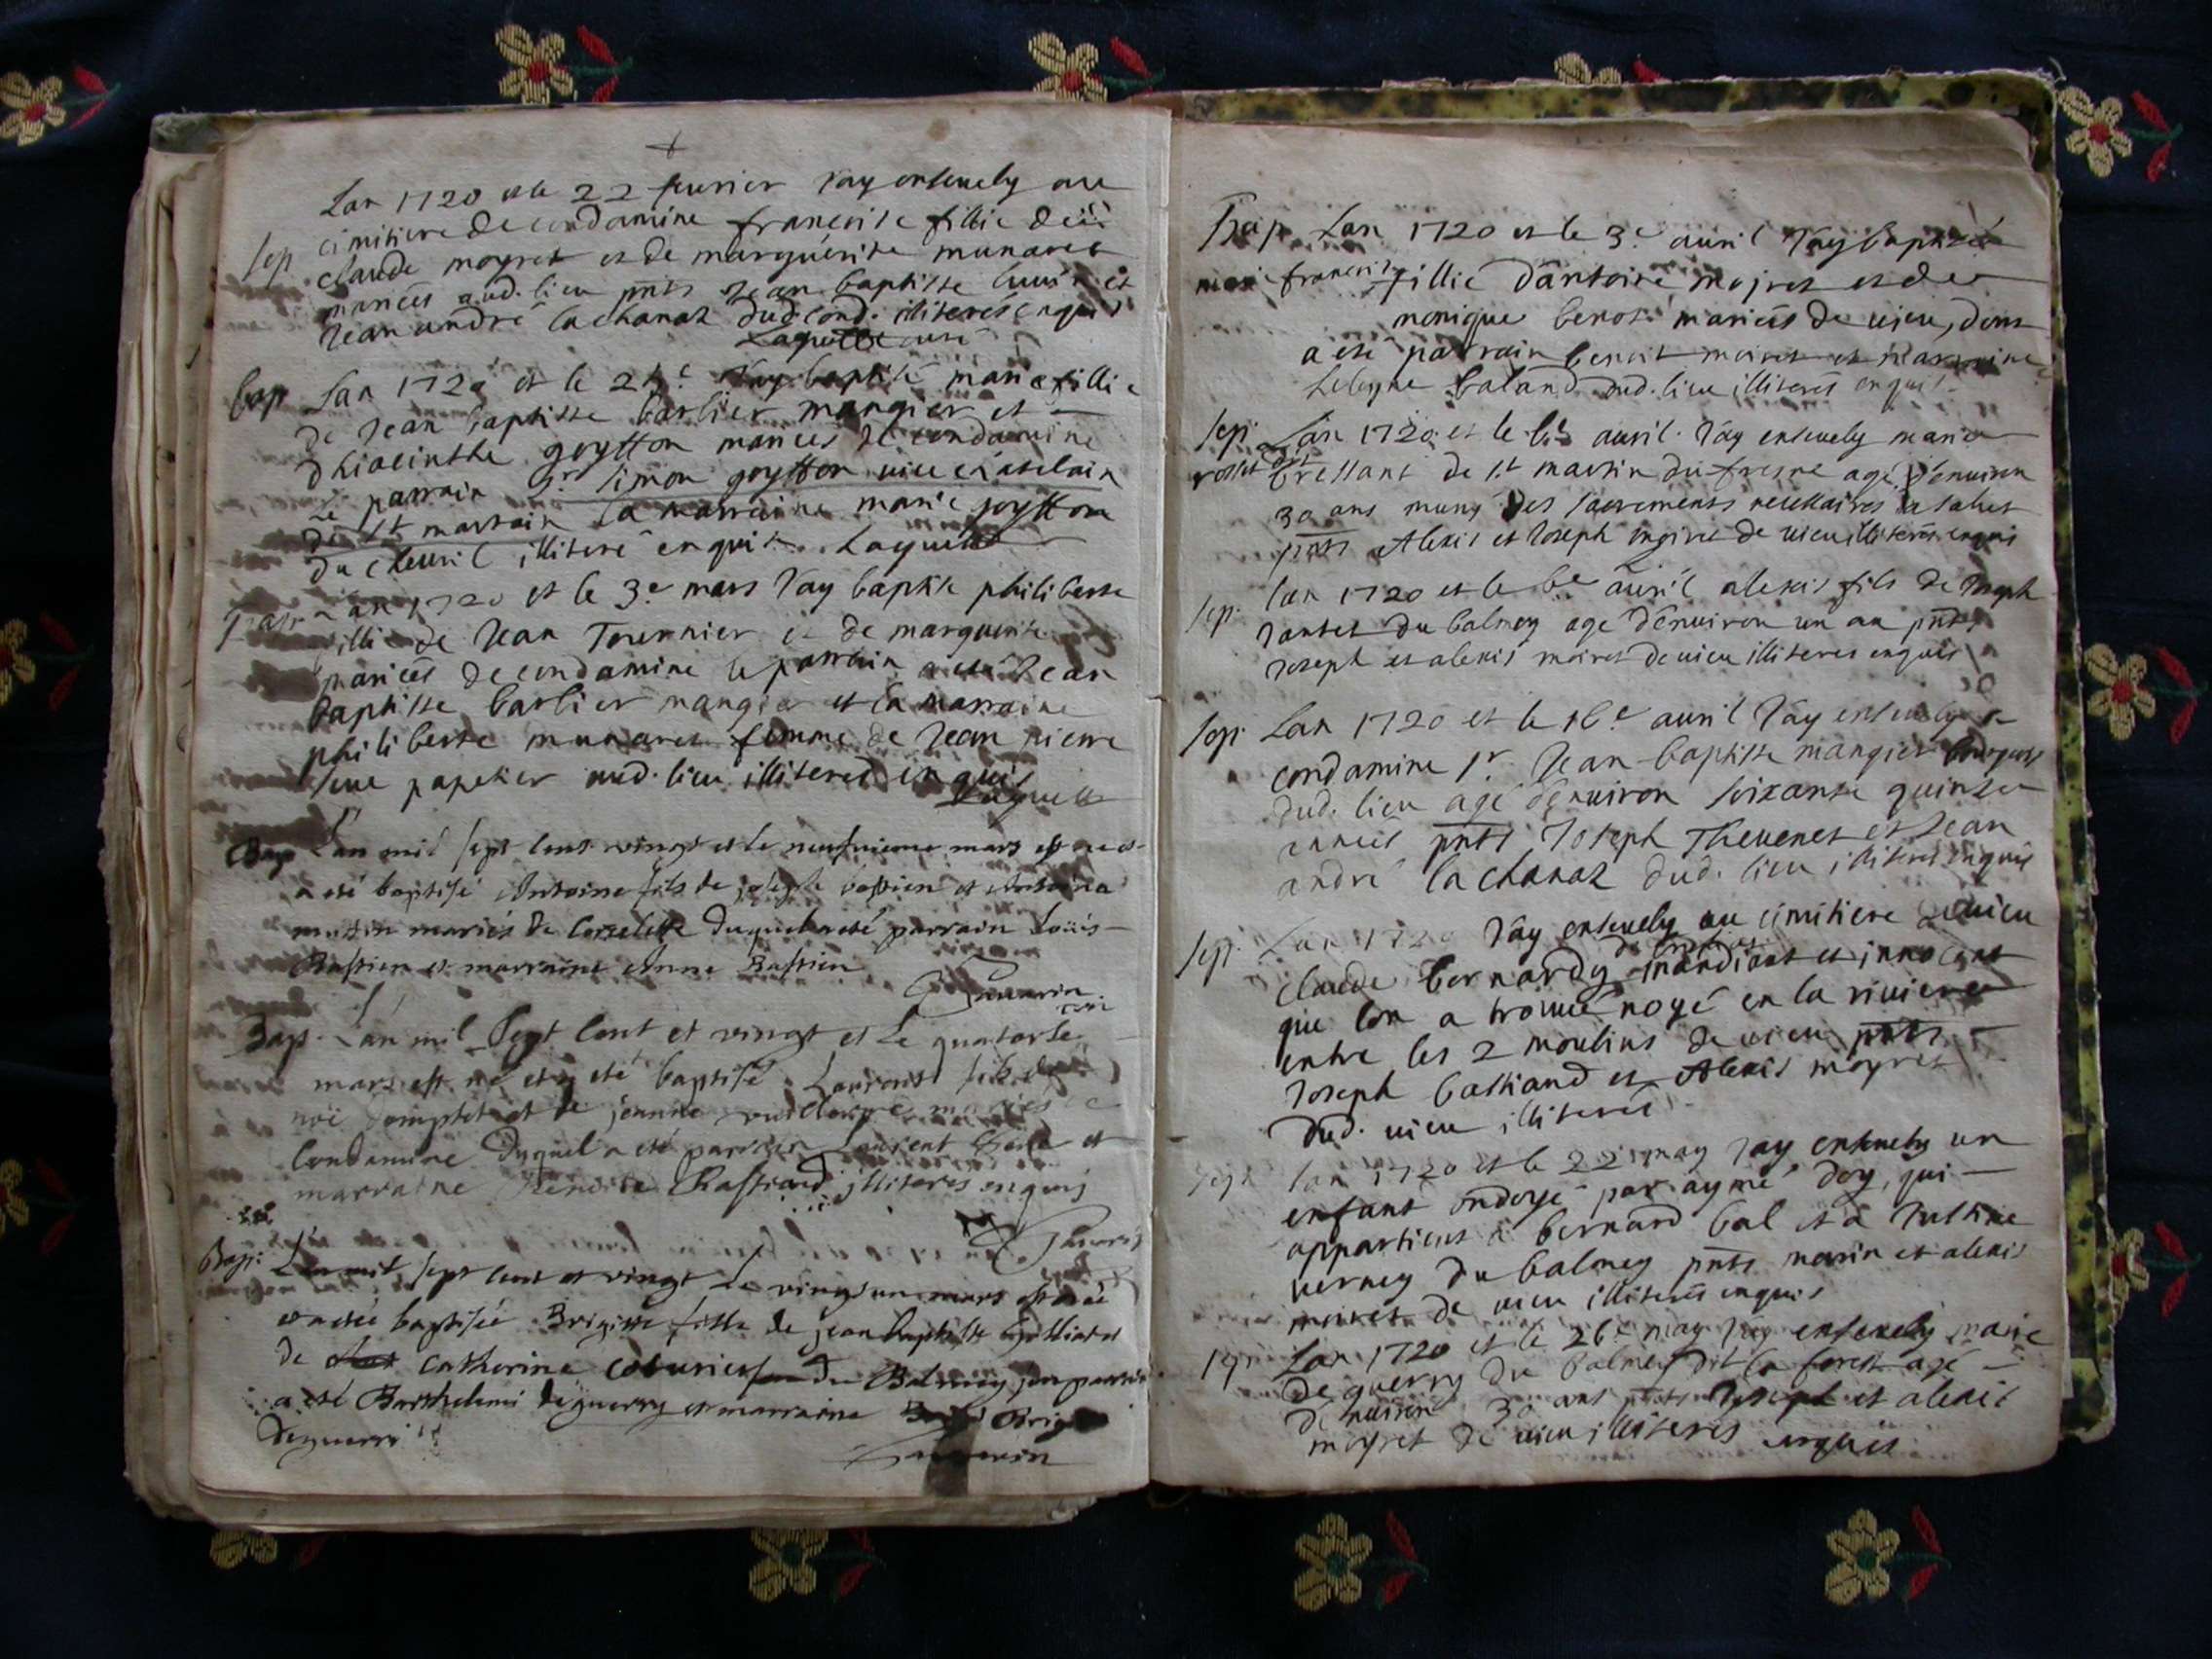 Lan 1720 et le 22 feurier Jay enseuely au
cimitiere de condamine francoise fillie de
Sep claude moyret et de marguerite munaret
mariées aud. lieu pnts Jean baptiste et
Jean andre lachanaz dud. cond. illiterés enquis
Laguette curé
bap Lan 1720 et le 24e Jay baptisé marie fillie
de Jean baptiste barlier mangier et
dhiacinthe goytton mariées de condamine
Le parrain Sr Simon goytton vice chatelain
de St martin la marraine marie goytton
du cheuril illiteré enquis. Laguette
Bap Lan 1720 et le 3e mars Jay baptise philiberte
fillie de Jean Tournier et de marguerite
mariées de condamine le parrain a esté Jean
baptiste barlier mangier et la marraine
philiberte munaret femme de Jean pierre
seue papetier aud. lieu illiterés enquis
Laguette
Bap Lan mil sept cens vingt et le neufuieme mars est né et
a esté baptisé Antoine fils de joseph bastien et Antoina
mariés de Corcelette duquel a esté parrain Loüis
Bastien et marraine Anne Bastien
Bap. Lan mil Sept Cent et vingt et Le quatorse
mars est né et a eté baptisé Laurent fils de
noë et de jeanne mariés de
Condamine duquel a eté parrain Laurent et
marraine Benoite Bastiand illiteres enquis
Bap: Lan mil sept cent et vingt Le vingt un mars est née
et a esté baptisée Brigitte fille de jean baptiste
de Catherine du Balmey son parrain
a esté Barthelemi deguerry et marraine Brigitte
deguerri
Bap Lan 1720 et le 3e auril Jay baptisé
marie francoise fillie dantoine mojret et de
monique benoit mariées de uieu, dont
a esté parrain benoit moiret et marraine
baland dud. lieu illiterés enquis
Sep: Lan 1720 et le 6e auril Jay enseuely marie
rosset dit bressant de St martin du fresne agé denuiron
30 ans muny des sacrements necessaires a salut
pnts Alexis et Joseph de uieu illiterés enquis
Sep: lan 1720 et le 6e auril alexis fils de Joseph
Jantet du balmey agé denuiron un an pnts
Joseph et alexis moiret de uieu illiteres enquis
Sep: Lan 1720 et le 16e auril Jay enseuely a
condamine Sr Jean baptiste mangier bourgeois
dud. lieu agé denuiron soixante quinse
années pnts Joseph Theuenet et Jean
andré lachanaz dud. lieu illiteres enquis
Sep: Lan 1720 Jay enseuely au cimitiere de uieu
claude bernardy mandiant et innocent
que lon a trouué noyé en la riuiere
entre les 2 moulins de uieu pnts
Joseph bastiand et Alexis moyret
dud. uieu illiterés
Sep: lan 1720 et le 22 may Jay enseuely un
enfant ondoyé par aymé doy, qui
appartient a bernard bal et a Justine
uerney du balmey pnts marin et alexis
moiret de uieu illiterés enquis
Sep: Lan 1720 et le 26e may Jay enseuely marie
deguerry du balmey dit la forest agé
denuiron 30 ans pnts Joseph et alexis
moyret de uieu illiterés enquis